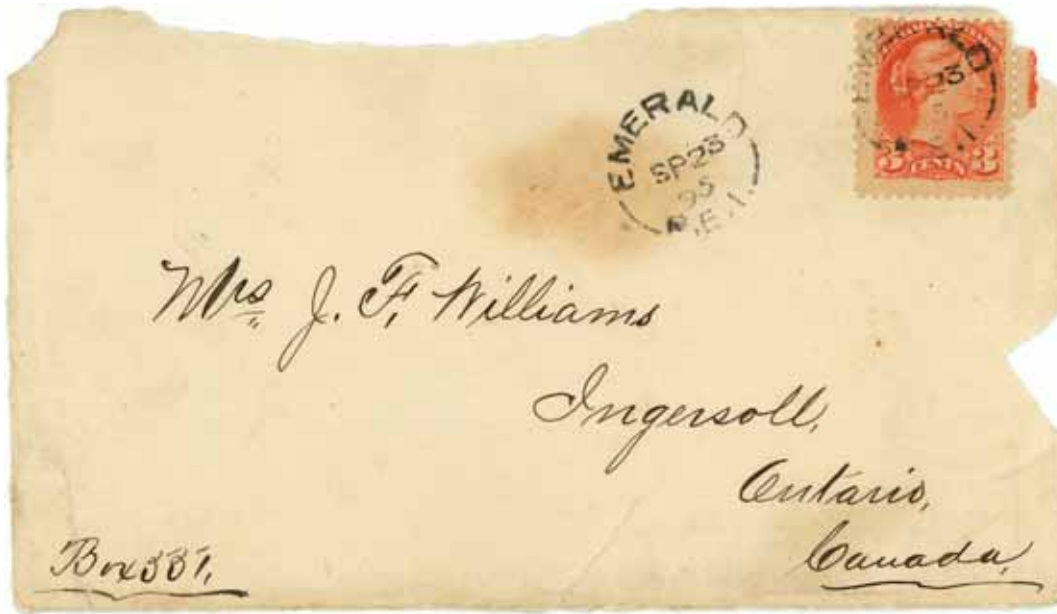 EMERALD
SP 23
95
P.E.I.
ALD
23
3 CENTS 3
Mrs J. F. Williams
Ingersoll,
Ontario,
Canada,
Box 337,